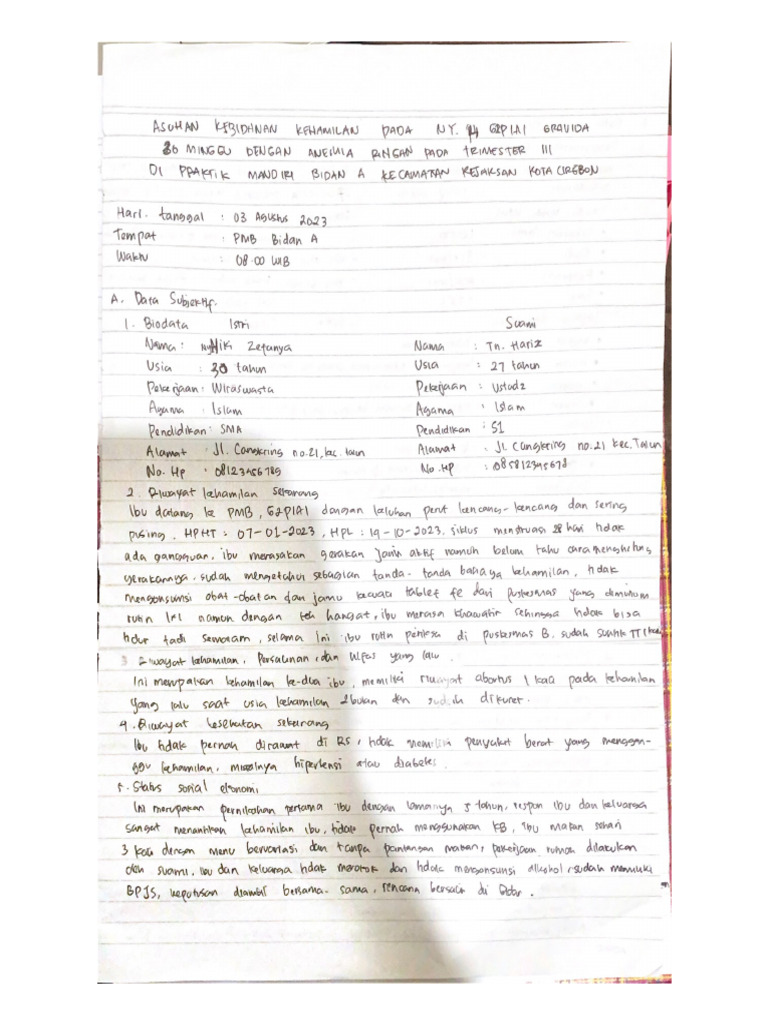 ASUHAN KEBIDANAN KEHAMILAN PADA NY. G2P1A1 GRAVIDA
30 MINGGU DENGAN ANEMIA RINGAN PADA TRIMESTER III
DI PRAKTIK MANDIRI BIDAN A KECAMATAN KEJAKSAN KOTA CIREBON
Hari. tanggal : 03 Agustus 2023
Tempat : PMB Bidan A
Waktu : 08.00 WIB
A. Data Subjektif.
1. Biodata Istri Suami
Nama : Niki Zefanya Nama : Tn. Hariz
Usia : 30 tahun Usia : 27 tahun
Pekerjaan : Wiraswasta Pekerjaan : Ustadz
Agama : Islam Agama : Islam
Pendidikan : SMA Pendidikan : S1
Alamat : Jl. Cangkring no.21, kec. Talun Alamat : Jl. Cangkring no.21 kec. Talun
No. Hp : 08123456789 No. HP : 085812345678
2. Riwayat kehamilan sekarang
Ibu datang ke PMB, G2P1A1 dengan keluhan perut kencang-kencang dan sering
pusing. HPHT : 07-01-2023, HPL : 14-10-2023. siklus menstruasi 28 hari tidak
ada gangguan, ibu merasakan gerakan janin aktif namun belum tahu cara menghitung
gerakannya. sudah mengetahui sebagian tanda-tanda bahaya kehamilan, tidak
mengonsumsi obat-obatan dan jamu kecuali tablet fe dari puskesmas yang diminum
rutin ini namun dengan teh hangat, ibu merasa khawatir sehingga tidak bisa
tidur tadi semalam, selama ini ibu rutin periksa di puskesmas B. sudah suntik TT
3. Riwayat kehamilan, Persalinan, dan Nifas yang lalu.
Ini merupakan kehamilan ke-dua ibu, memiliki riwayat abortus 1 kali pada kehamilan
yang lalu saat usia kehamilan 2 bulan dan sudah dikuret.
4. Riwayat kesehatan sekarang
Ibu tidak pernah dirawat di RS, tidak memiliki penyakit berat yang menggan-
ggu kehamilan, misalnya hipertensi atau diabetes.
5. Status sosial ekonomi
Ini merupakan pernikahan pertama ibu dengan lamanya 5 tahun, respon ibu dan keluarga
sangat menantikan kehamilan ibu, tidak pernah menggunakan KB, ibu makan sehari
3 kali dengan menu bervariasi dan tanpa pantangan makan, pekerjaan rumah dilakukan
oleh suami, ibu dan keluarga tidak merokok dan tidak mengonsumsi alkohol, sudah memiliki
BPJS, keputusan diambil bersama-sama, rencana bersalin di